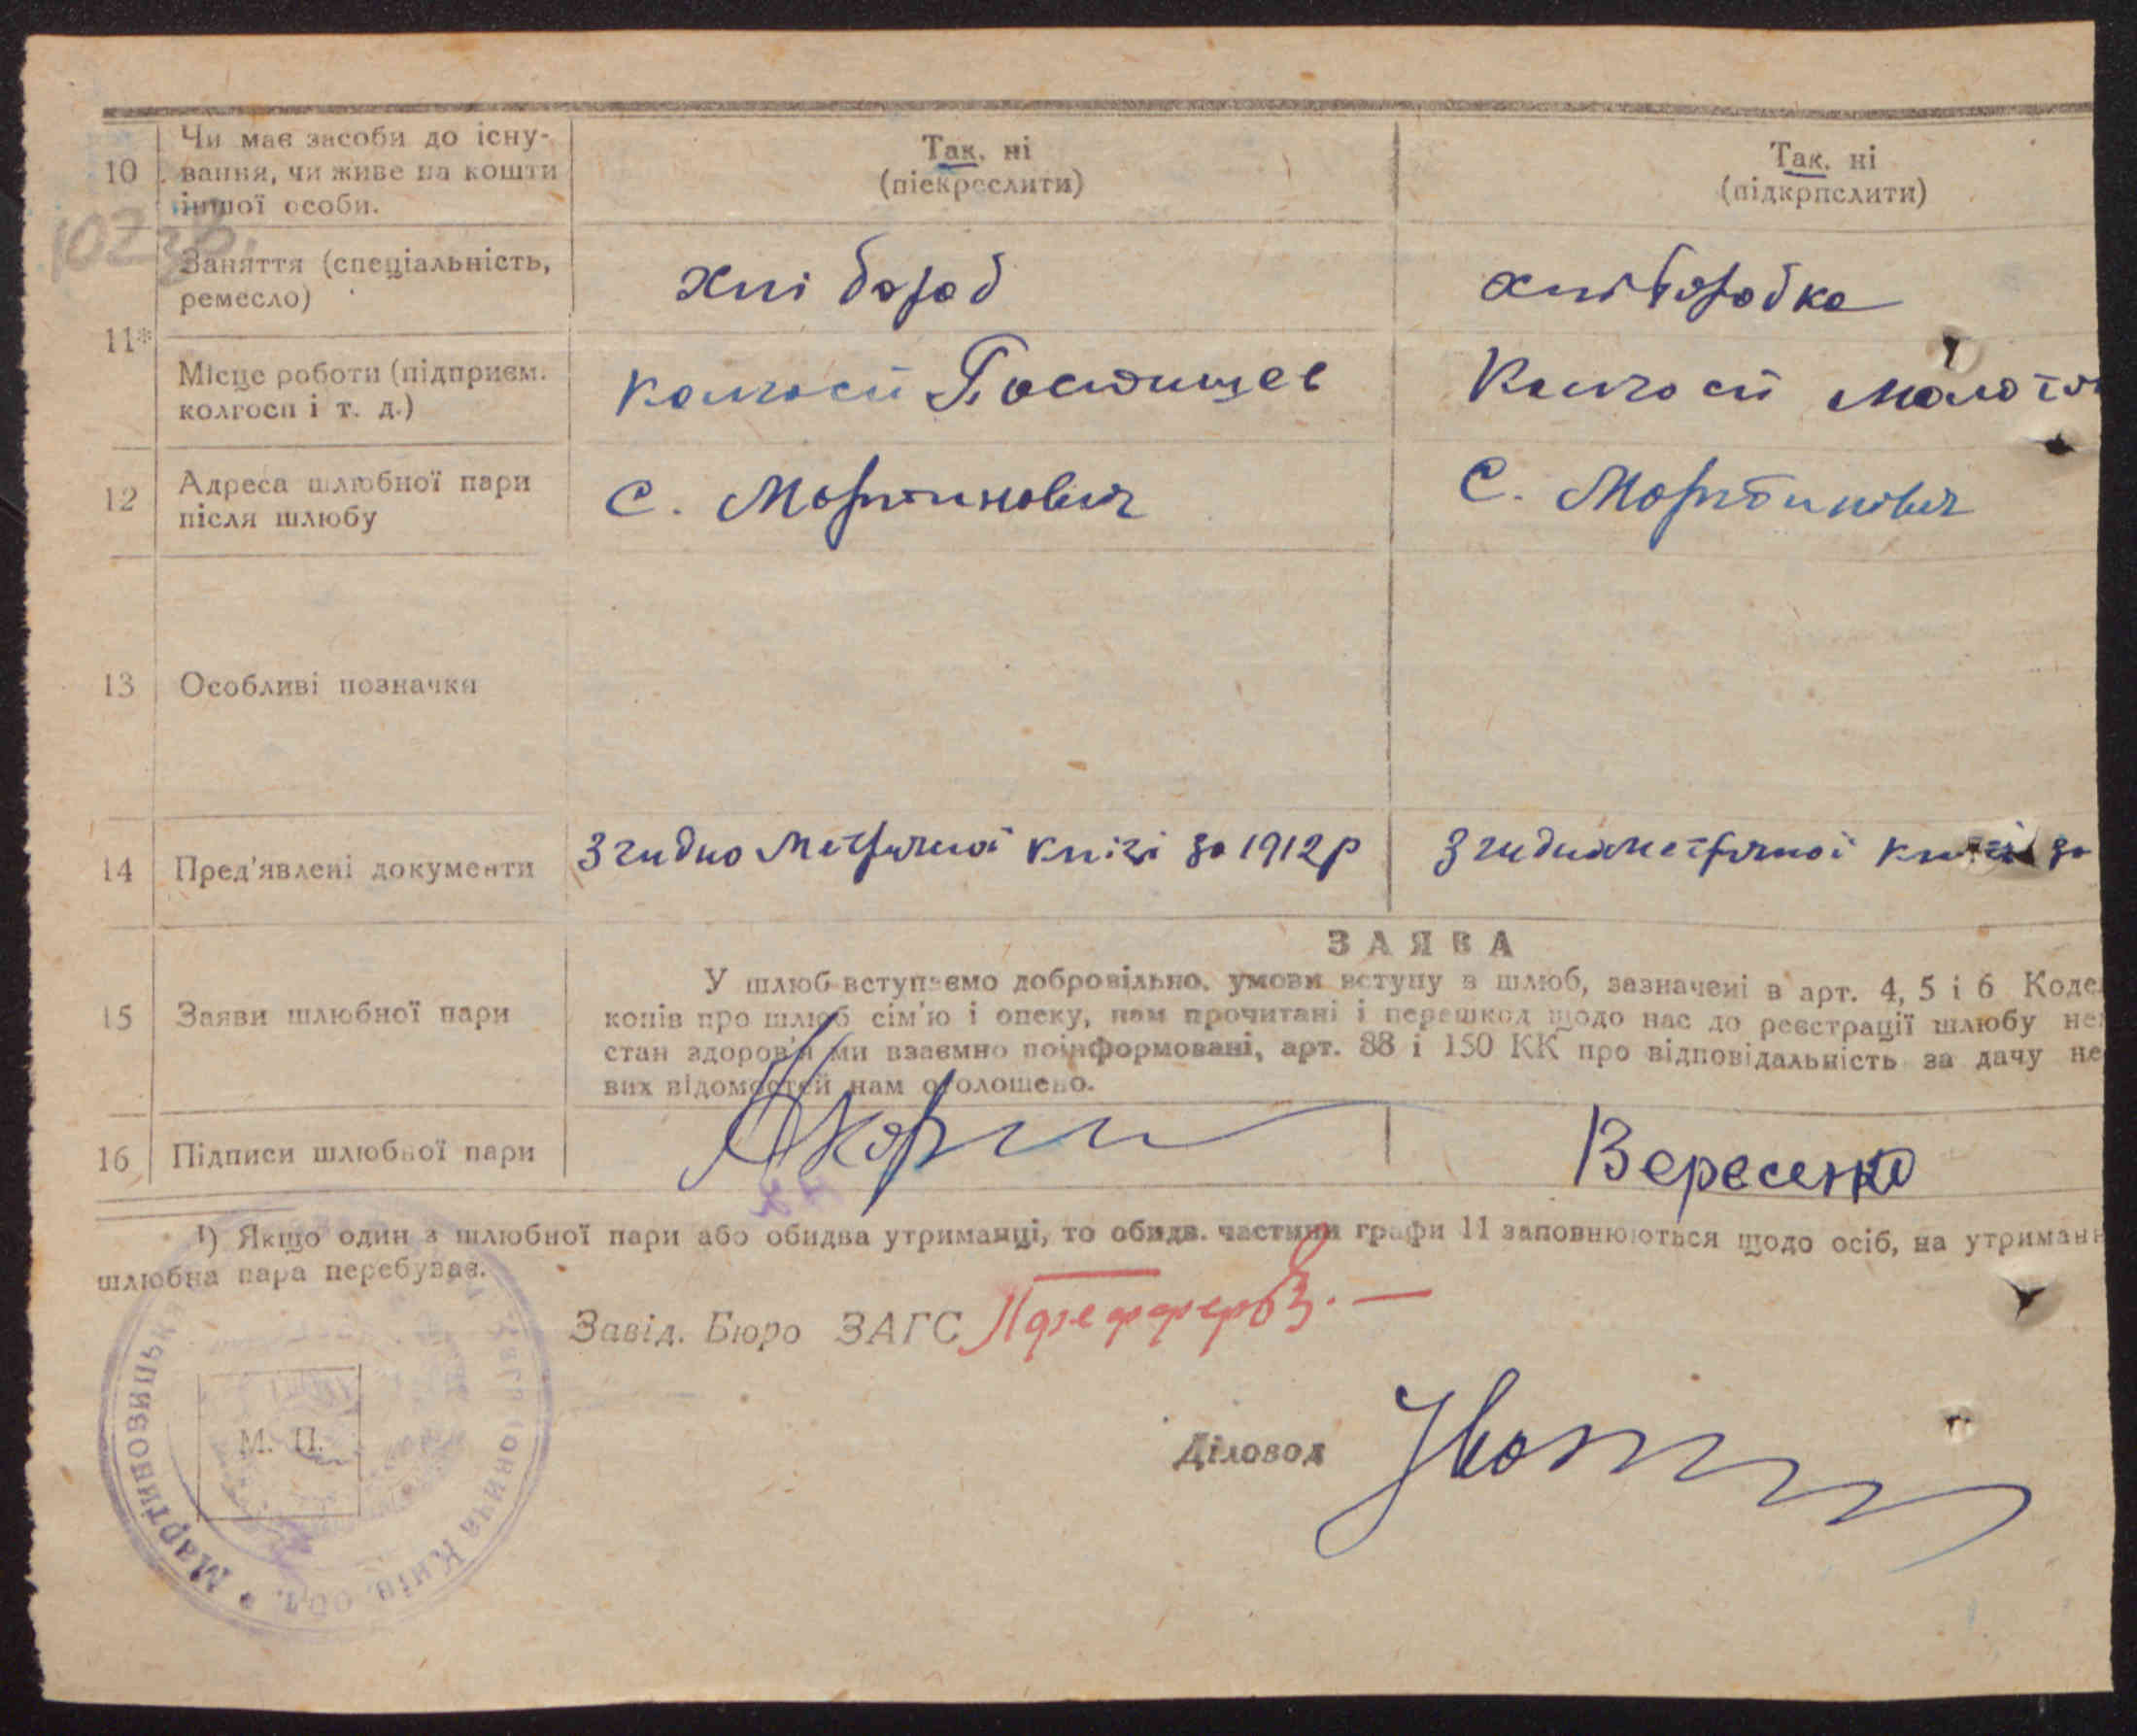 10
Чи має засоби до існу-
вання, чи живе на кошти
іншої особи.
Так, ні
(піекреслити)
Так, ні
(підкрпслити)
11*
Заняття (спеціальність,
ремесло)
хлібороб
хліборобка
Місце роботи (підприєм.
колгосп і т. д.)
колгосп Постишев
Колгосп Молот
12
Адреса шлюбної пари
після шлюбу
С. Мартинович
С. Мартинович
13
Особливі позначки
14
Пред'явлені документи
Згидно Метричної кнізі за 1912р
Згидно метричної за
15
Заяви шлюбної пари
ЗАЯВА
У шлюб вступаємо добровільно, умови вступу в шлюб, зазначені в арт. 4, 5 і 6 Коде
копів про шлюб сім'ю і опеку, нам прочитані і перешкод щодо нас до реєстрації шлюбу не
стан здоров'я ми взаємно поінформовані, арт. 88 і 150 КК про відповідальність за дачу не
вих відомостей нам оголошено.
16
Підписи шлюбної пари
Вересенко
¹) Якщо один з шлюбної пари або обидва утриманці, то обидв. частини графи 11 заповнюються щодо осіб, на утриманн
шлюбна пара перебуває.
Завід. Бюро ЗАГС
Діловод
М. П.
Мартиновицька
Київ. обл.